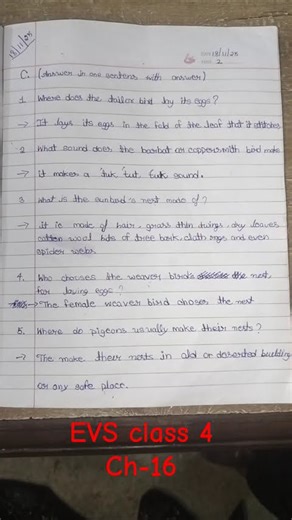 18/11/25
DATE: 18/11/25
PAGE: 2
C. (Answer in one sentence with answer)
1. Where does the tailor bird lay its eggs?
→ It lays its eggs in the fold of the leaf that it stitches
2. What sound does the barbat or coppersmith bird make
→ it makes a tuk tuk tuk sound.
3. What is the sunbird's nest made of?
→ it is made of hair, grass thin twings, dry leaves
wool bits of tree bark, cloth rags and even
spider webs.
4. Who chooses the weaver bird's the nest,
for laying eggs?
→ The female weaver bird choses the nest
5. Where do pigeons usually make their nests?
→ The make their nests in old or deserted building
or any safe place.
EVS class 4
Ch-16